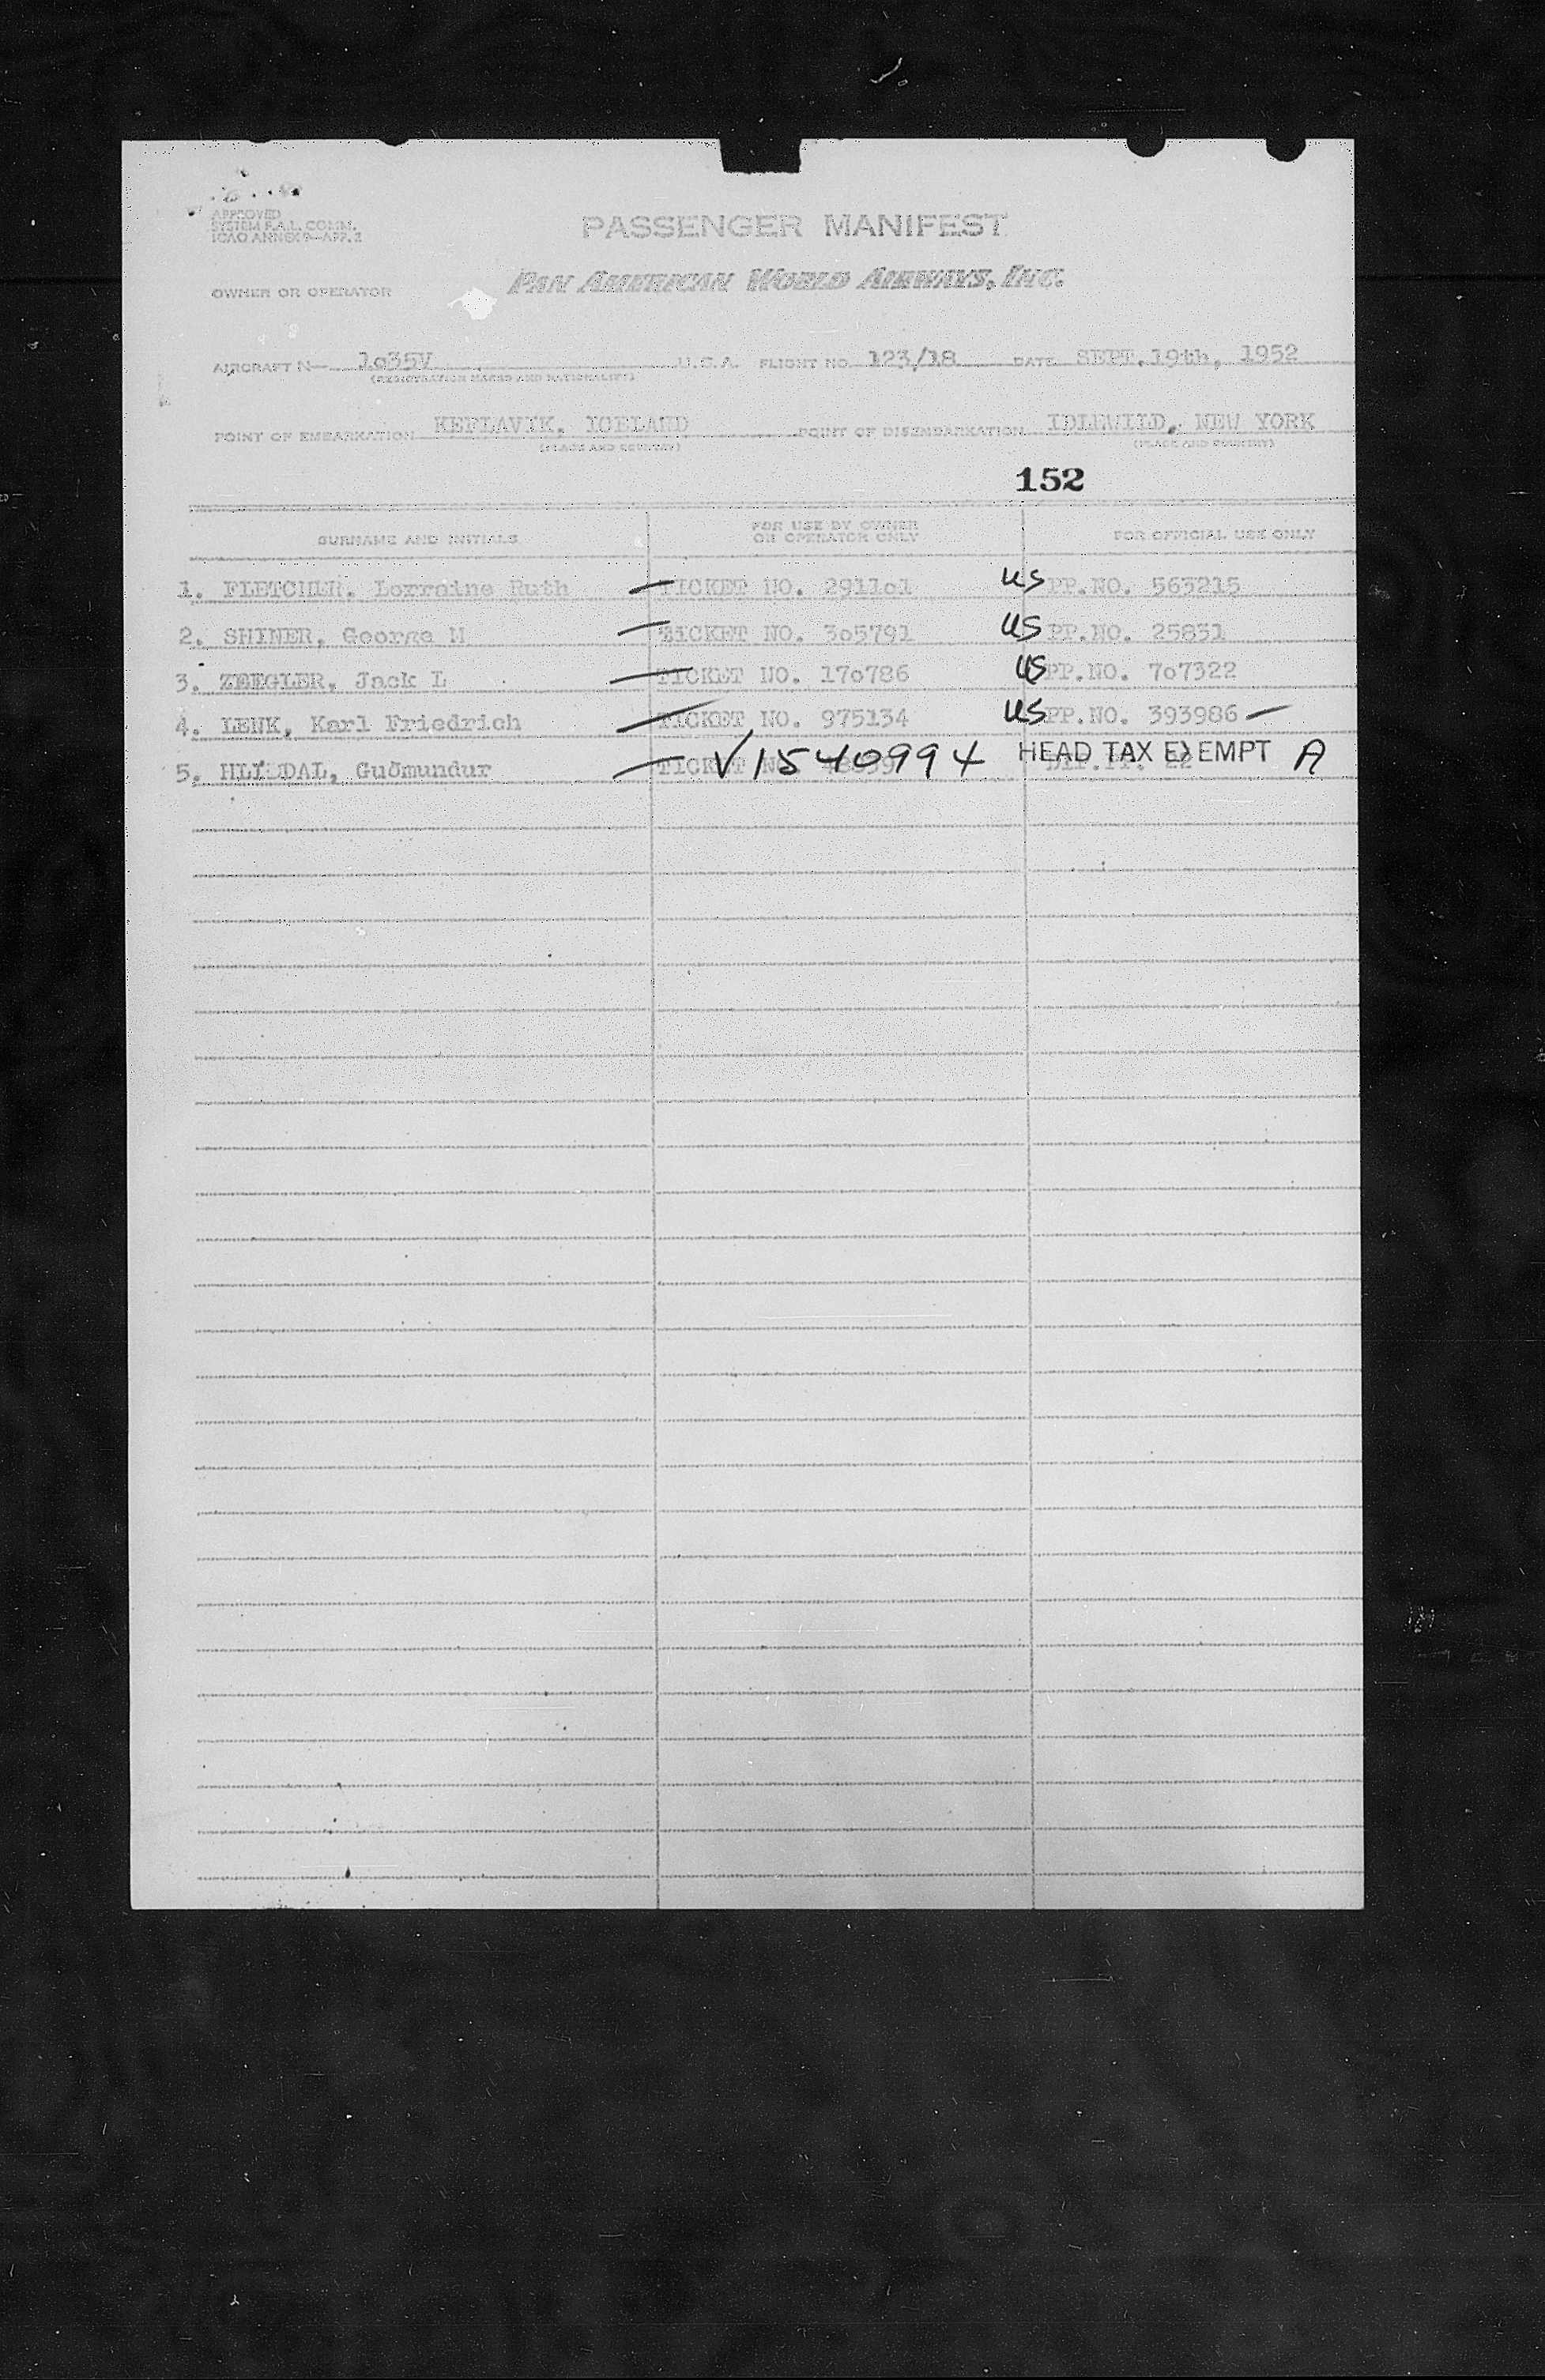 APPROVED
SYSTEM F.A.L. COMM.
ICAO ANNEX 9—APP. 2
PASSENGER MANIFEST
OWNER OR OPERATOR PAN AMERICAN WORLD AIRWAYS, INC.
AIRCRAFT N— 1o35V U.S.A. FLIGHT NO. 123/18 DATE SEPT.19th, 1952
(REGISTRATION MARKS AND NATIONALITY)
POINT OF EMBARKATION KEFLAVIK, ICELAND POINT OF DISEMBARKATION IDLEWILD, NEW YORK
(PLACE AND COUNTRY) (PLACE AND COUNTRY)
152
SURNAME AND INITIALS FOR USE BY OWNER OR OPERATOR ONLY FOR OFFICIAL USE ONLY
1. FLETCHER, Lorraine Ruth — TICKET NO. 2911o1 US PP.NO. 563215
2. SHINER, George M — TICKET NO. 3o5791 US PP.NO. 25831
3. ZEEGLER, Jack L — TICKET NO. 17o786 US PP.NO. 7o7322
4. LENK, Karl Friedrich — TICKET NO. 975134 US PP.NO. 393986 —
5. HLÍÐDAL, Guðmundur — TICKET NO. V1540994 HEAD TAX EXEMPT A